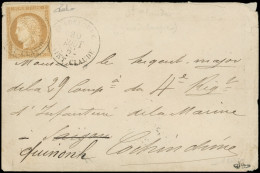 Monsieur le Sergent-major
de la 29 Comp^ie du 4^e Rig^t
d'Infanterie de la Marine
Saigon
Quinonh Cochinchine